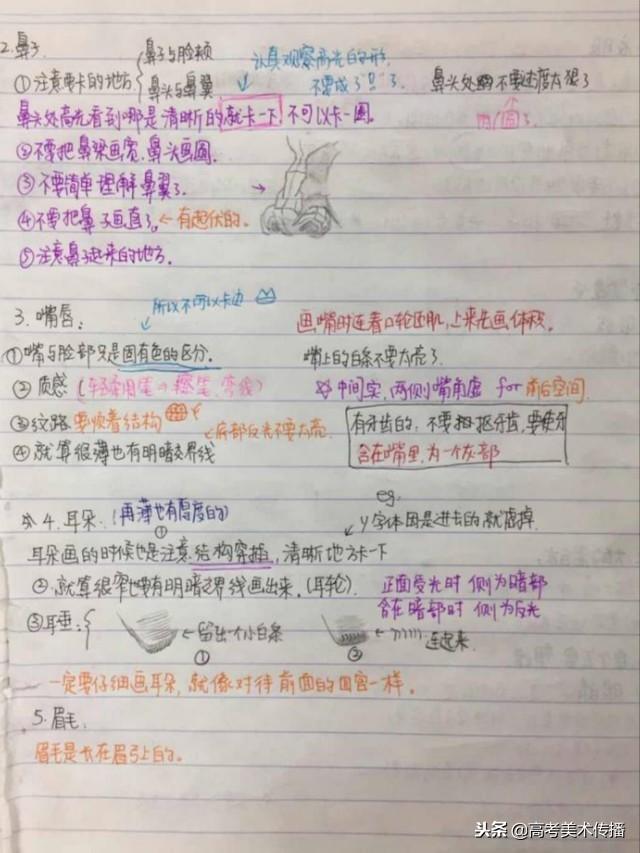 2.鼻子
①注意要卡的地方{鼻子与脸颊
鼻头与鼻翼
认真观察高光的形
不要成了 了
鼻头处 不要过度太狠了
鼻头处高光看到哪是清晰的就卡一下 不可以卡一圈。
②不要把鼻梁画宽,鼻头画圆.
③不要简单理解鼻翼了.
④不要把鼻子画直了。←有起伏的。
⑤注意鼻子起来的地方.
所以不可以卡边
3.嘴唇:
画嘴时连着口轮匝肌,上来先画体积.
①嘴与脸部只是固有色的区分.
嘴上的白条不要太亮了.
②质感
中间实,两侧嘴角虚 for 前后空间.
③纹路要顺着结构
←底部反光不要太亮.
④就算很薄也有明暗交界线
有牙齿的,不要抠牙齿,要使牙
含在嘴里,为一个灰部
4.耳朵.(再薄也有厚度的)
①
eg.
Y字体因是进去的就虚掉.
耳朵画的时候也是注意结构穿插,清晰地方卡一下
②.就算很窄也要有明暗交界线画出来.(耳轮)
正面受光时 侧为暗部
含在暗部时 侧为反光
③耳垂:{
←留出个小白条
①
②
连过来.
一定要仔细画耳朵,就像对待前面的四官一样。
5.眉毛.
眉毛是长在眉弓上的。
头条 @高考美术传播